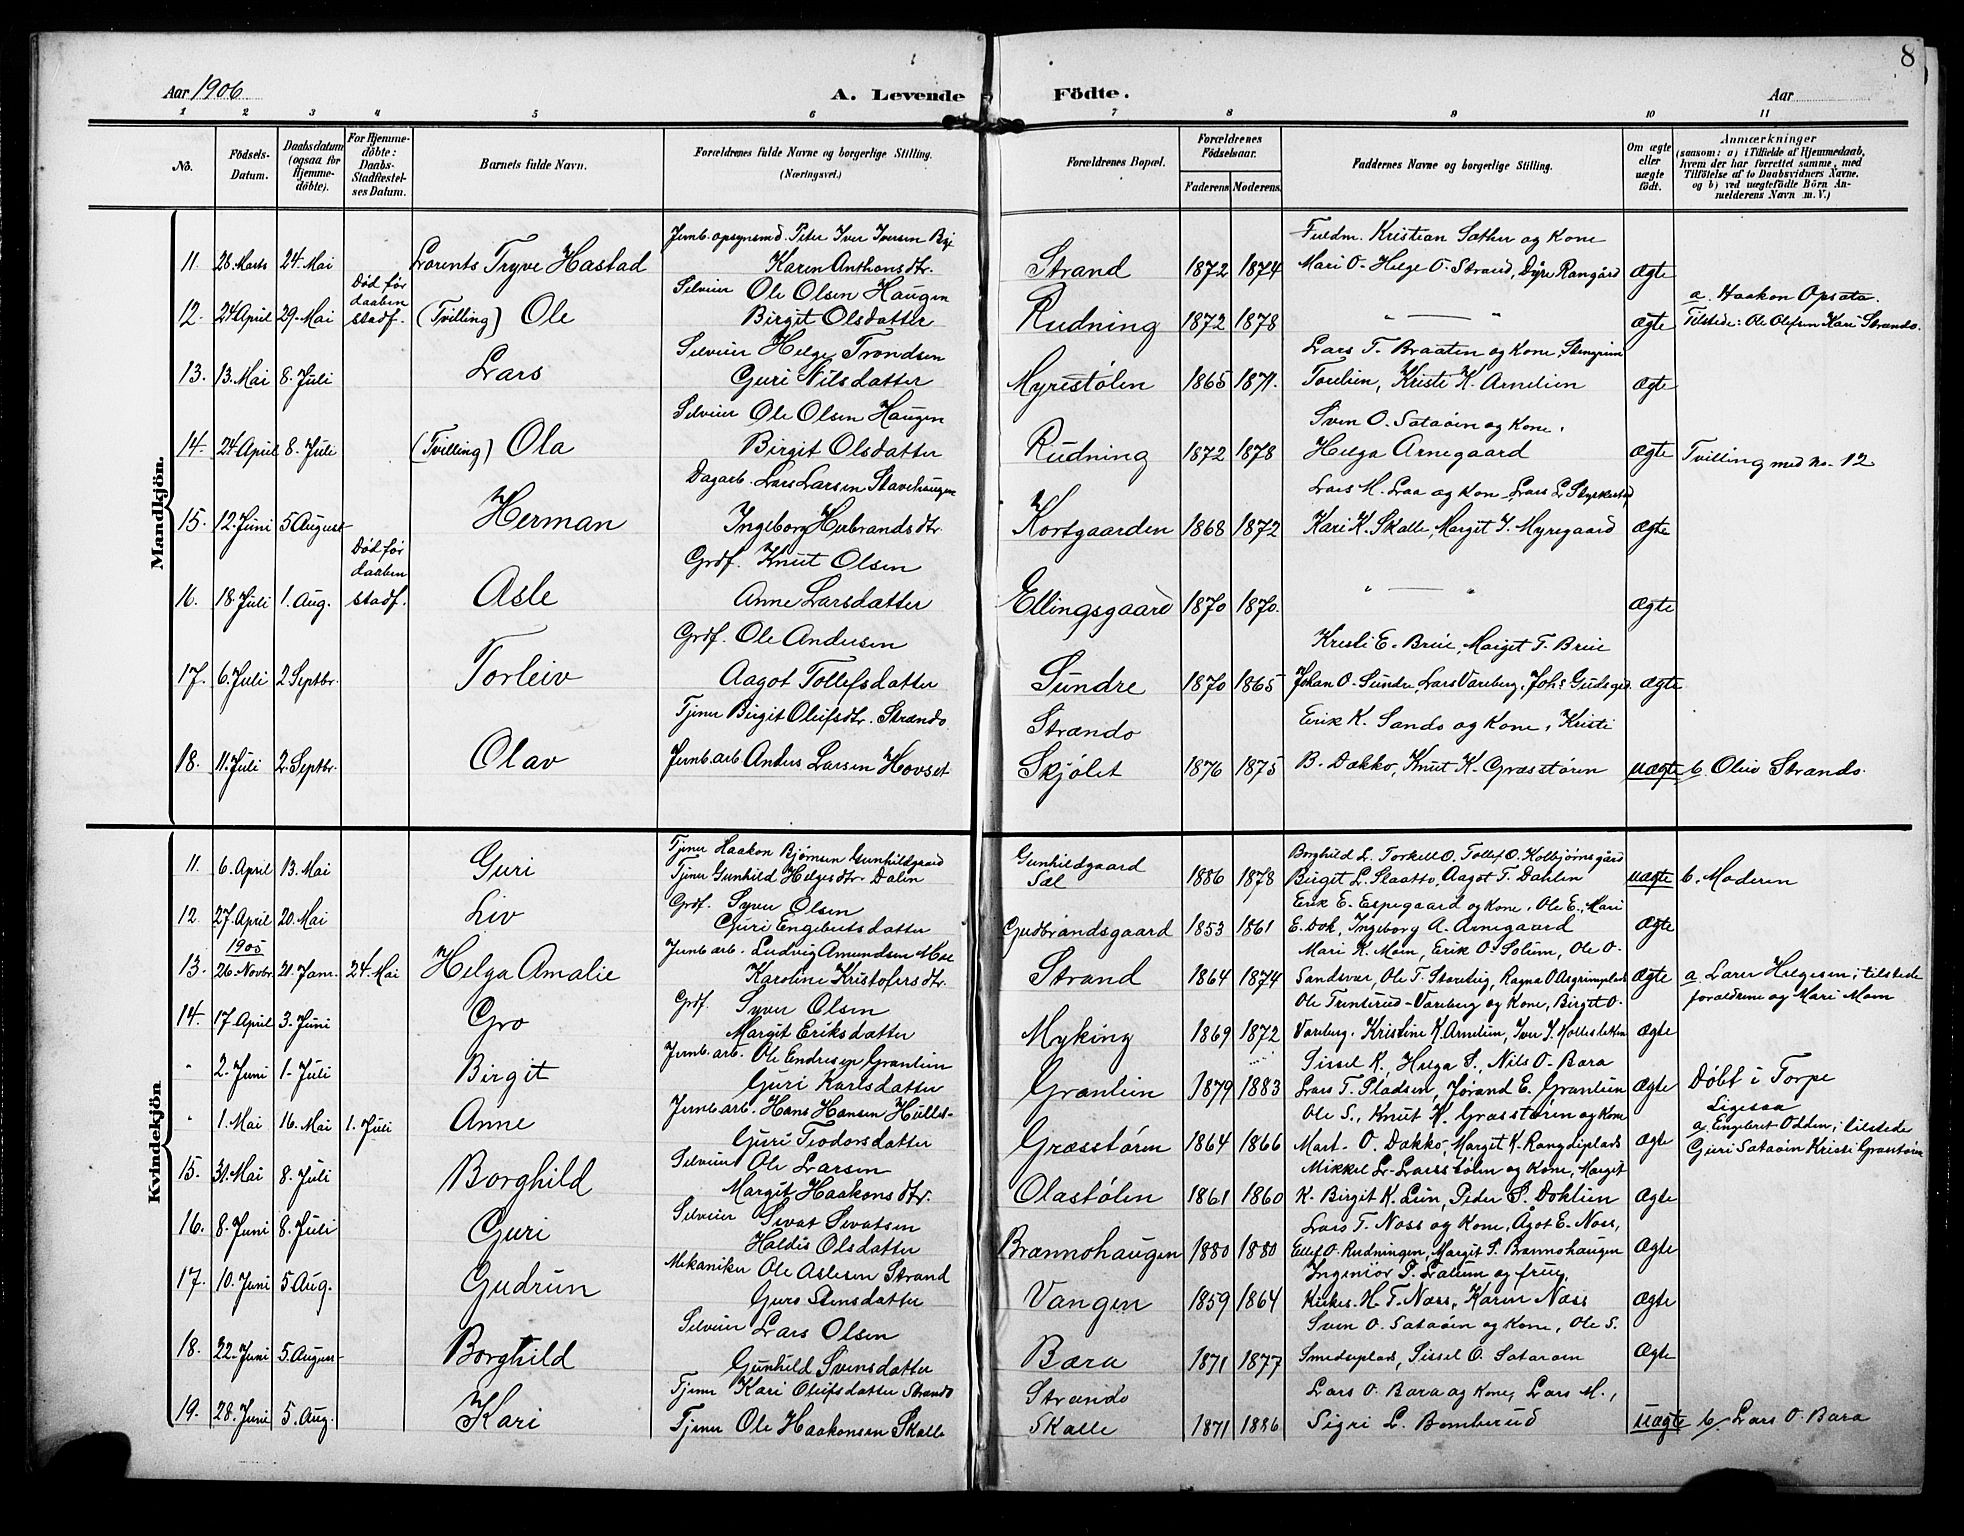 8
Aar 1906 A. Levende Födte. Aar
1 2 3 4 5 6 7 8 9 10 11
No. Födsels-Datum. Daabsdatum (ogsaa for Hjemmedöbte). For Hjemmedöbte: Daabs-Stadfestelses Datum. Barnets fulde Navn. Forældrenes fulde Navne og borgerlige Stilling. (Næringsvei.) Forældrenes Bopæl. Forældrenes Födselsaar. Faderens Moderens. Faddernes Navne og borgerlige Stilling. Om ægte eller uægte födt. Anmærkninger (saasom: a) i Tilfælde af Hjemmedaab, hvem der har forrettet samme, med Tilföielse af to Daabsvidners Navne. og b) ved uægtefödte Börn Anmelderens Navn m. V.)
Mandkjön.
Jernb. opsynsmd. Peter Iver Iversen Bye Fuldm. Kristian Sæther og Kone
11. 28. Marts 24. Mai Lorents Tryve Hastad Karen Anthonsdtr. Strand 1872 1874 Mari O. Helge O. Strand, Dyre Rangård Ægte
Død før daaben stadf. Selveier Ole Olsen Haugen a. Haakon Opsata.
12. 24 April 29. Mai (Tvilling) Ole Birgit Olsdatter Rudning 1872 1878 " — " Ægte Tilstede: Ole Olsen Kari Strando.
Selveier Helge Trondsen Lars T. Braaten og Kone, Stengrim
13. 13. Mai 8. Juli Lars Guri Nilsdatter Myrestølen 1865 1871. Torelien, Kristi K. Arnelien Ægte
Selveier Ole Olsen Haugen Sven O. Sataøien og Kone.
14. 24 April 8. Juli (Tvilling) Ola Birgit Olsdatter Rudning 1872 1878 Helga Arnegaard Ægte Tvilling med No. 12
Dagarb. Lars Larsen Stavehaugen Lars M. Laa og Kon Lars L.
15. 12. Juni 5 August Herman Ingeborg Herbrandsdtr. Kortgaarden 1868 1872 Kari K. Skalle, Margit T. Myregaard Ægte
Død før daaben stadf. Grdf. Knut Olsen
16. 18. Juli 1. Aug. Asle Anne Larsdatter Ellingsgaard 1870 1870. " — " Ægte
Grdf. Ole Andersen Kristi E. Brue, Marget T. Brue
17. 6. Juli 2 Septbr. Torleiv Aagot Tollefsdatter Sundre 1870 1865 Johan O. Sundre, Lars Vareberg, Joh: Gudsgd. Ægte
Tjener Birgit Olufsdtr. Strando Strando Erik K. Sando og Kone, Kristi
18. 11. Juli 2. Septbr. Olav Jernb. arb Anders Larsen Hovset Skjølet 1876 1875 B. Dokko, Knut K. Græsstøren uægte b. Oluv Strando.
Kvindekjön
Tjener Haakon Bjørnsen Gunhildgaard Gunhildgaard Borghild L. Torkell O. Tollef O. Kolbjørnsgård
11. 6. April 13. Mai Guri Tjener Gunhild Helgesdtr. Dalen Sæl 1886 1878 Birgit L. Slaatto, Aagot T. Dahlen uægte b. Moderen
Grdf. Syver Olsen Erik E. Espegaard og Kone, Ole E., Mari
12. 27 April 20. Mai Liv Guri Engebretsdatter Gudbrandsgaard 1853 1861 E. Dok, Ingeborg A. Arnegaard Ægte
1905 Jernb. arb. Ludvig Amundsen Moe Mari K. Moen, Erik O. Solum, Ole O.
13. 26. Novbr. 21. Janr. 24. Mai Helga Amalie Karoline Kristofersdtr. Strand 1864 1874 Sandsvar, Ole T. Storebig, Ragna O Asgrimplads Ægte a. Larer Helgesen, tilstede
Grdf. Syver Olsen Ole Trintrud-Vareberg og Kone, Birgit O. foraldrene og Mari Moen
14. 17 April 3. Juni Gro Margit Eriksdatter Myking 1869 1872 Vareberg. Kristine K. Arnelien, Iver T. Ægte
Jernb. arb. Ole Endresen Grønlien Sissel K., Helga S., Nils O. Bara
" 2. Juni 1. Juli Birgit Guri Karlsdatter Grønlien 1879 1883 Lars T. Pladsen, Jørand E. Grønlien Ægte Døbt i Torpe
Jernb. arb. Hans Hansen Hulles- Ole S., Knut K. Græsstøren og Kone Ligesaa
" 1. Mai 16. Mai 1. Juli Anne Guri Teodorsdatter Græsstørin 1864 1866 Mart. O. Dokko, Margit K. Rangdiplads Ægte a. Engebret Odden, tilstede
Selveier Ole Larsen Mikkel Lr. Larsstølen og Kone, Margit Guri Sataøien Kristi Græsstøren
15. 31. Mai 8. Juli Borghild Margit Haakonsdtr. Olastølen 1861 1860 K. Birgit K. Lien, Peder S. Doklien Ægte
Selveier Sevat Sevatsen Lars T. Næss og Kone, Ågot E. Næss,
16. 8. Juni 8. Juli Guri Haldis Olsdatter Brænnohaugen 1880 1880 Ellef O. Rudningen, Margit S. Brænnohaugen Ægte
Mekaniker Ole Aslesen Strand Ingeniør P. Lalum og frue,
17. 10. Juni 5 Aug. Gudrun Guro Stensdatter Vangen 1859 1864 Kirkes. H. T. Næss, Karen Næss Ægte
Selveier Lars Olsen Sven O. Sataøien og Kone, Ole S.
18. 22. Juni 5. August Borghild Gunhild Svensdatter Bæra 1871 1877 Smedsplads, Sissel O. Sataøien Ægte
Tjener Kari Olufsdatter Strando Strando Lars O. Bæra og Kone, Lars M.,
19. 28. Juni 5. Aug. Kari Tjener Ole Haakonsen Skalle Skalle 1871 1886 Sigri L. Bomberud uægte b. Lars O. Bara